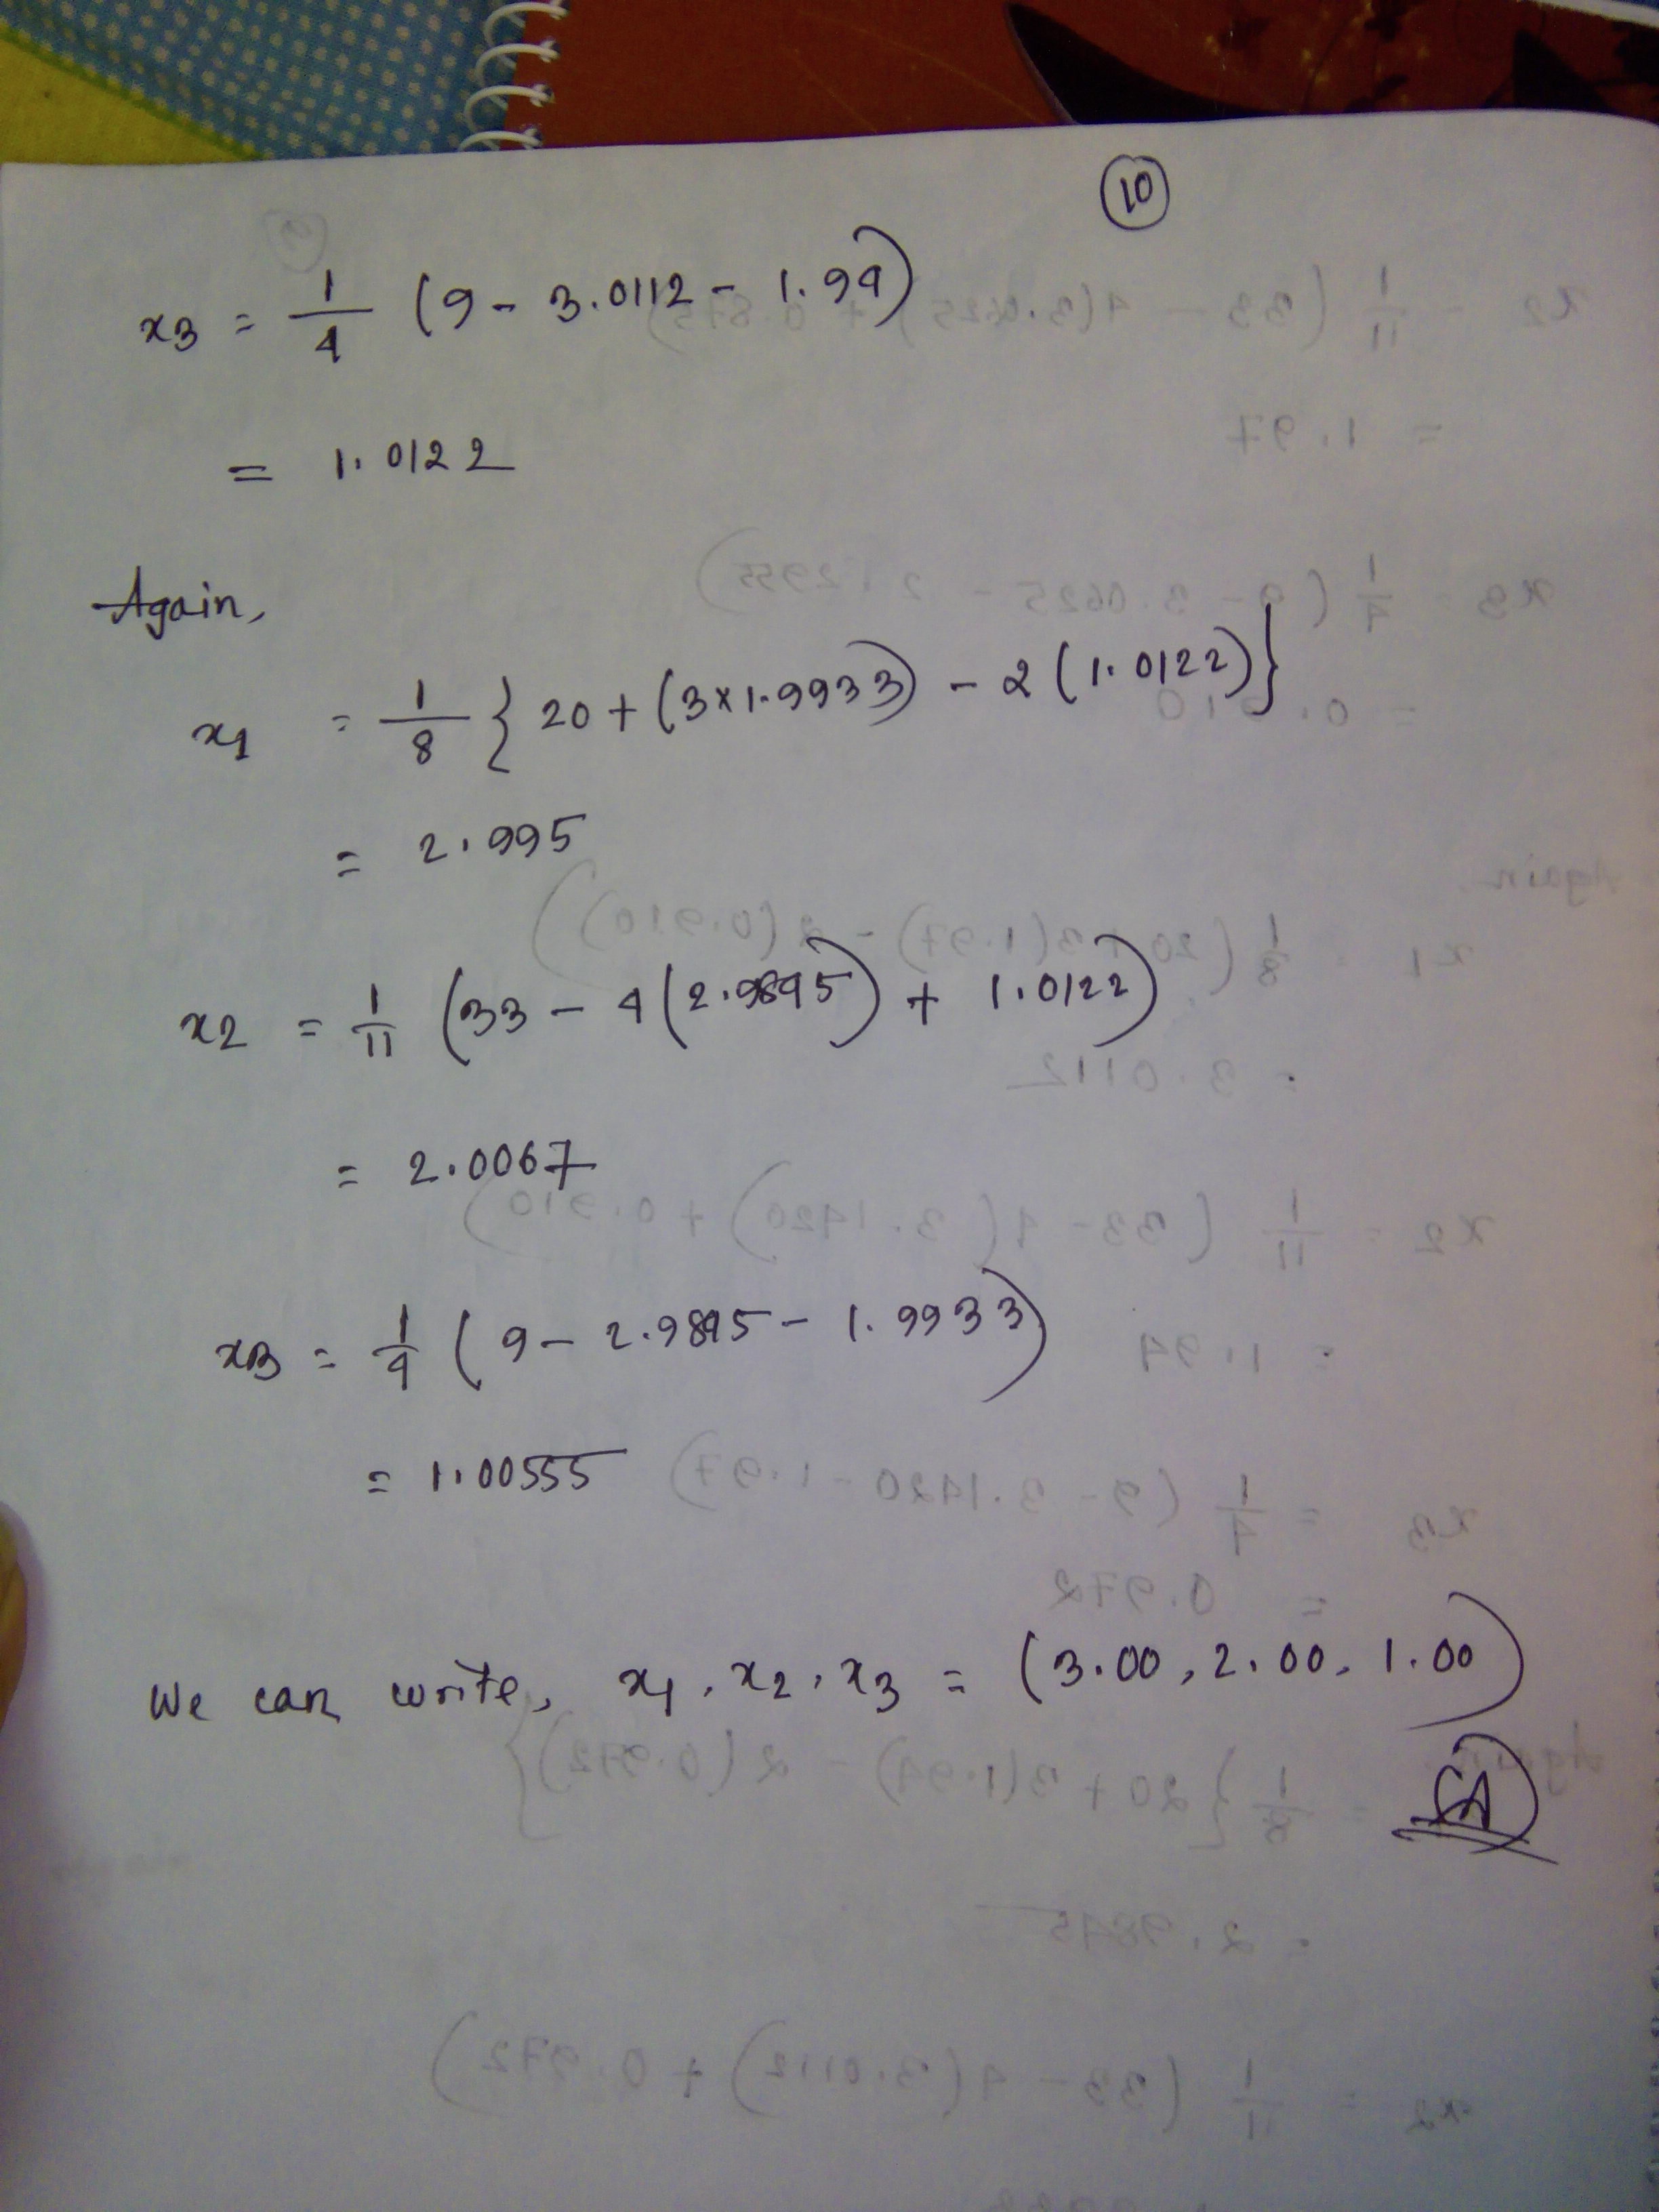 10
x3 = 1/4 (9 - 3.0112 - 1.94)
= 1.0122
Again,
x1 = 1/8 { 20 + (3×1.9933) - 2 (1.0122)}
= 2.995
x2 = 1/11 (33 - 4(2.9845) + 1.0122)
= 2.0067
x3 = 1/4 (9 - 2.9845 - 1.9933)
= 1.00555
We can write, x1, x2, x3 = (3.00, 2.00, 1.00)